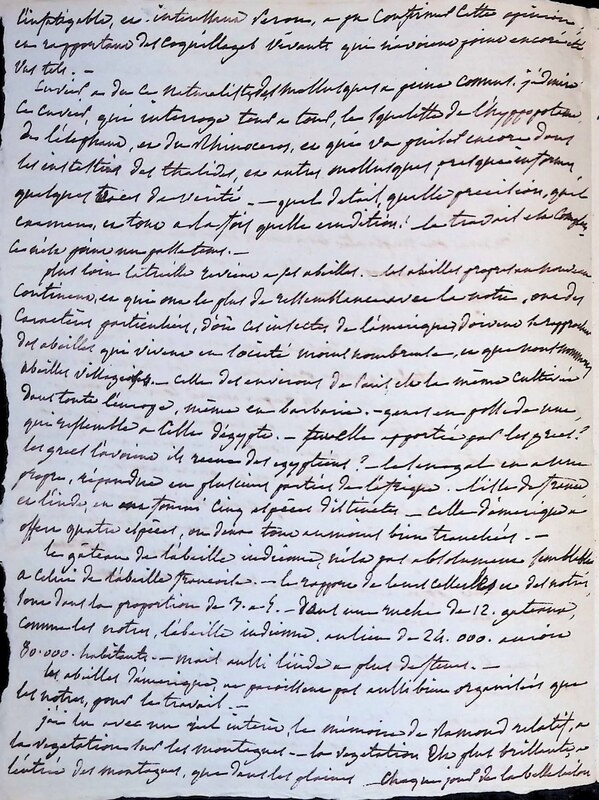 l'infatigable, et interessant Peron, a pu confirmer cette opinion,
en rapportant des coquillages vivants qui n'avoient point encore été
vus tels. —
Cuvier a du ce naturaliste, des mollusques a peine connus. j'admire
ce cuvier, qui interroge tour a tour, le squelette de l'hyppopotame,
de l'éléphant, et du Rhinoceros, et qui va puiser encore dans
les intestins des thalides, et autres mollusques, presque informes
quelques traces de vérité. — quel detail, quelle precision, quel
examen, et tout a la fois quelle erudition! le travail et la
ce cide point un
plus loin latreille revient a ses abeilles. — les abeilles propres au nouveau
continent, et qui ont le plus de ressemblance avec la notre, ont des
caractères particuliers, d'où ces insectes de l'amerique doivent se rapprocher
des abeilles qui vivent en société moins nombreuse, et que nous nommons
abeilles villageoises. — celle des environs de Paris, est la même cultivée
dans toute l'europe, même en barbarie. — genes en possede une,
qui ressemble a celle d'égypte. — fut elle apportée par les grecs?
les grecs l'avoient ils recue des egyptiens? — le senegal en a une
propre, répandue en plusieurs parties de l'afrique. l'isle de france,
et l'inde, en ont fourni cinq espèces distinctes. — celle d'amerique a
offert quatre espèces, ou deux tout au moins bien tranchées. —
le gâteau de l'abeille indienne, n'est pas absolument semblable
a celui de l'abeille francoise. — le rapport de leurs cellules et des notres
sont dans la proportion de 3. a 5. — dans une ruche de 12. gateaux,
comme les notres, l'abeille indienne, au lieu de 24.000. auroit
80.000. habitants. — mais aussi l'inde a plus de fleurs. —
les abeilles d'amerique, ne paroissent pas aussi bien organisées que
les notres, pour le travail. —
j'ai lu avec un vif interêt, le mémoire de Ramond relatif, a
la vegetation sur les montagnes — la vegetation est plus brillante, a
l'entrée des montagnes, que dans les plaines — chaque jour de la belle saison